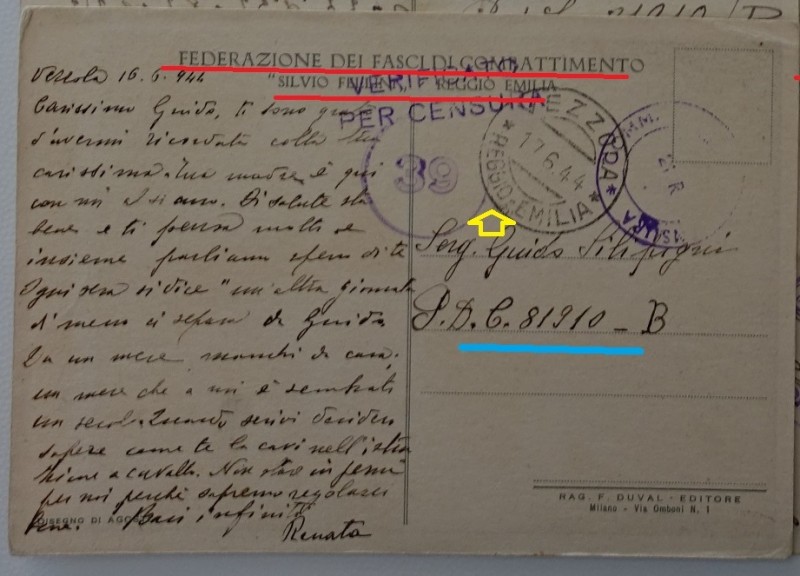 FEDERAZIONE DEI FASCI DI COMBATTIMENTO
"SILVIO REGGIO EMILIA
VERIFICATO
PER CENSURA
39
EZZOLA
17.6.44
* REGGIO-EMILIA *
Vezzola 16.6.944
Carissimo Guido, ti sono
d'avermi ricordata colla tua
carissima. tua madre è qui
con noi Di salute sta
bene e ti pensa molto e
insieme parliamo spesso di te
Ogni sera si dice "un'altra giornata
di meno ci separa da Guido,
Da un mese manchi da casa,
un mese che a noi è sembrato
un secolo. Quando scrivi desidero
sapere come te la cavi nell'istru
zione a cavallo. Non stare in pena
per noi perchè sapremo regolarci
bene. Baci infiniti
Renata
Serg. Guido
P.D.C. 81910 - B
RAG. F. DUVAL - EDITORE
Milano - Via Omboni N. 1
DISEGNO DI